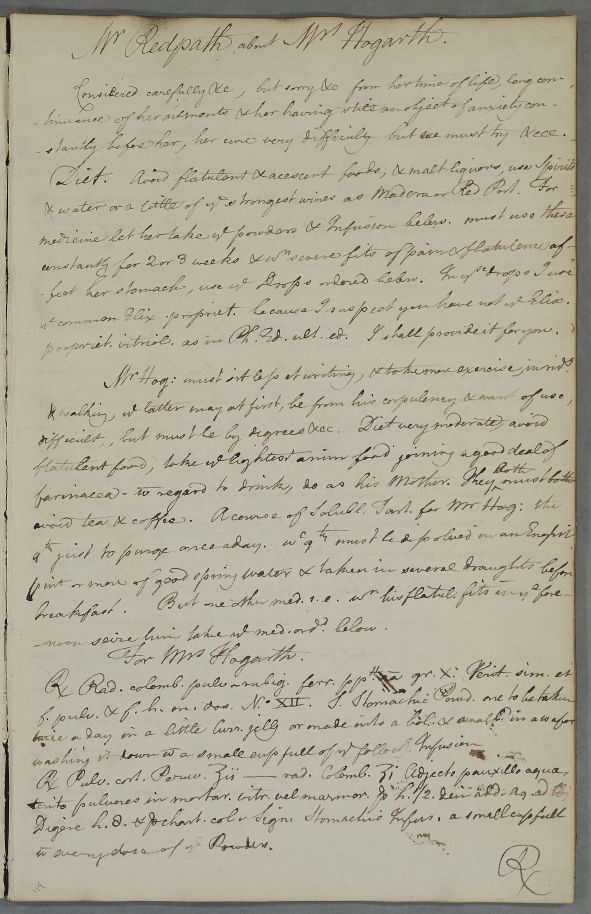 Mr Redpath about Mrs Hogarth.
Considered carefully &c, but sorry &c from her time of life, long con-
-tinuance of her ailments & her having still an object of anxiety con-
-stantly before her, her cure very difficult but we must try &cc.
Diet. Avoid flatulent & acescent foods, & malt liquors, use Spirits
& water or a little of ye strongest wines as Madera or Red Port. For
medicine let her take ye powders & Infusion below. must use these
constantly for 2 or 3 weeks & wn severe fits of pain & flatulence af-
-fect her stomach, use ye Drops ordered below. In yse drops I use
ye common Elix. propriet. because I suspect you have not ye Elix.
propriet. vitriol. as in Ph. Ed. ult. ed. I shall provide it for you.
Mr Hog: must sit less at writing, & take more exercise in ridg
& walking, ye latter may at first, be from his corpulency & want of use,
difficult, but must be by degrees &cc. Diet very moderate, avoid
flatulent food, take ye lightest anim food joining a good deal of
farinacea - w regard to drink, do as his Mother. They both must both
avoid tea & coffee. A course of Solubl. Tart. for Mr Hog: the
qty just to purge once a day. wc qty must be dissolved in an English
pint or more of good spring water & taken in several draughts before
breakfast. But one other med. i.e. wn his flatul. fits in ye fore-
-noon seize him take ye med. ordd below.
For Mrs Hogarth.
Rx Rad. colomb. pulv. rubig. ferr. ppt aa gr. X: Verit. sim. et
f. pulv. & f. h. m. dos. No XII. S. Stomachic Powd. one to be taken
twice a day in a little curr. jelly or made into a bol: & swald in a wafer
washing it down w a small cup full of ye followg Infusion
Rx Pulv. cort. Peruv. ʒii — rad. Colomb. ʒi Adjecto pauxillo aqua
terito pulveres in mortar. vitr. vel marmor. p h. 1/2. dein add. aq.
Digere h. 8. & p chart. cola Sign. Stomachic Infus. a small cup full
w every dose of ye Powders.
Rx